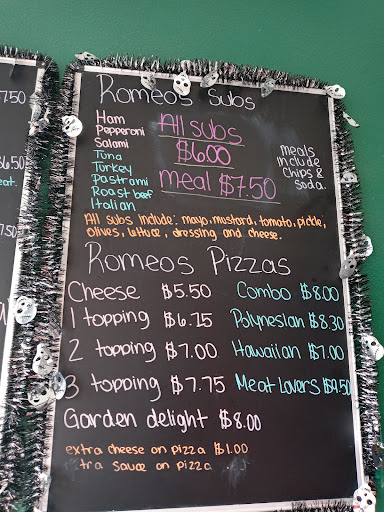 7.50
$6.50
eat.
7.50
Romeo's Subs
Ham
Pepperoni
Salami
Tuna
Turkey
Pastrami
Roast beef
Italian
All subs
$6.00
meal $7.50
meals
include
chips &
soda.
All subs include: mayo, mustard, tomato, pickle,
olives, lettuce, dressing and cheese.
Romeos Pizzas
Cheese $5.50
1 topping $6.75
2 topping $7.00
3 topping $7.75
Garden delight $8.00
Combo $8.00
Polynesian $8.30
Hawaiian $7.00
Meat Lovers $9.50
extra cheese on pizza $1.00
tra sauce on pizza